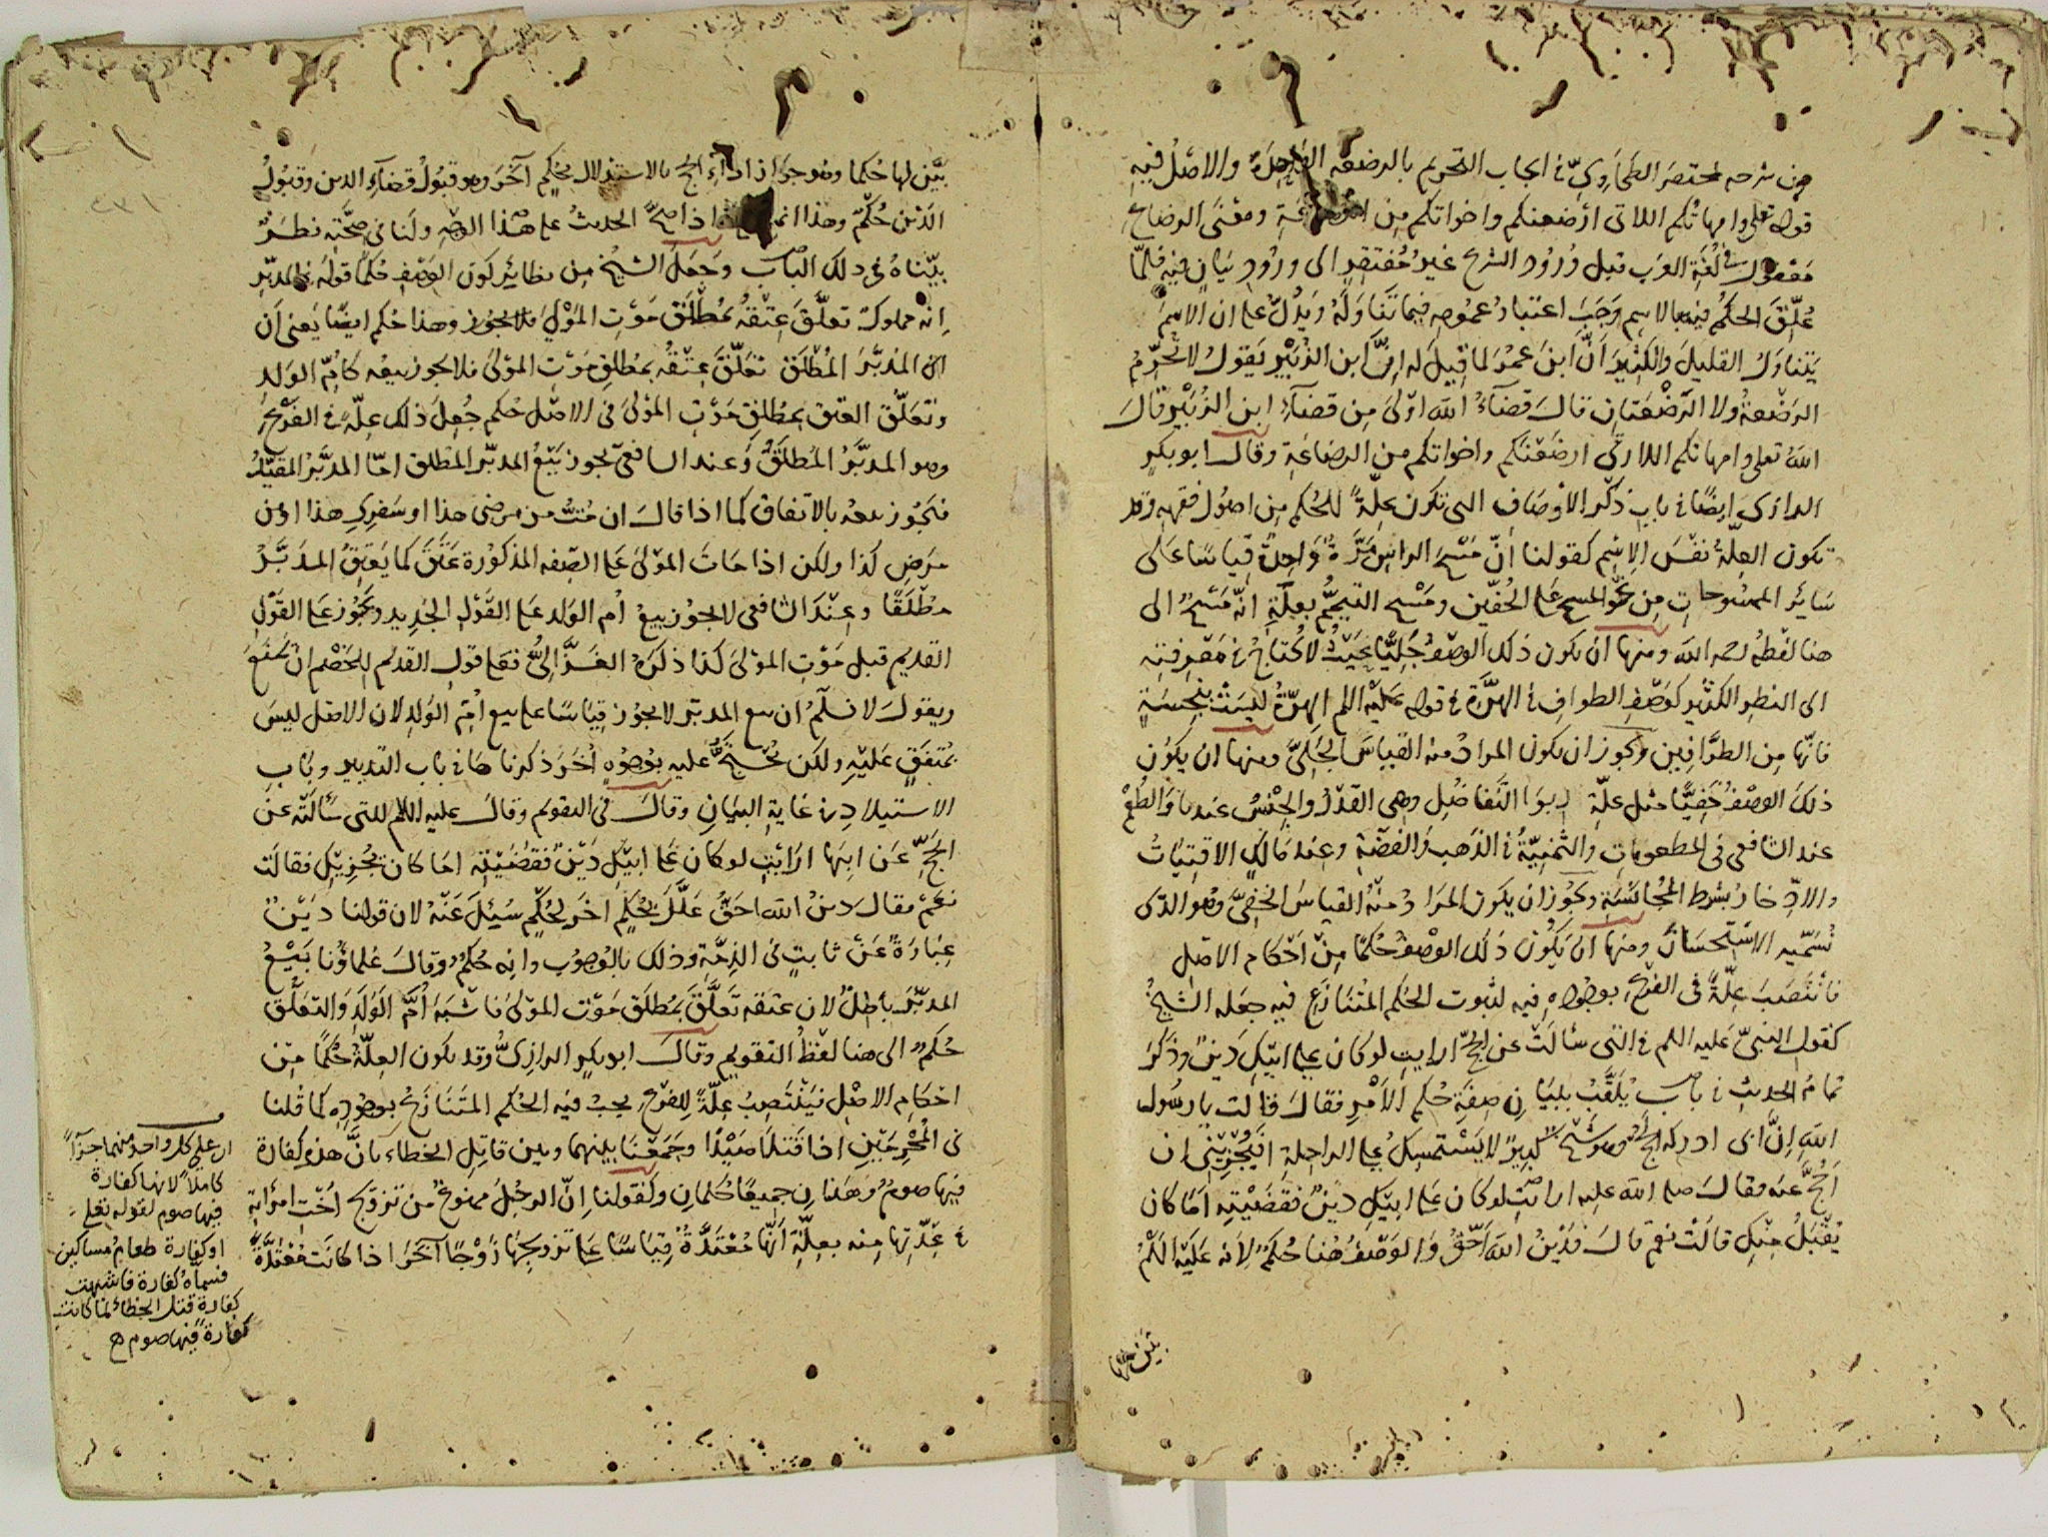 من شرحه لمختصر الطحاوي في ايجاب التحريم بالرضعه الواحدة والاصل فيه
قوله تعلى وامهاتكم اللاتى ارضعنكم واخواتكم من الرضاعة ومعنى الرضاع
معقول في لغة العرب قبل ورود الشرع غير مفتقر الى ورود بيان فيه فلما
علق الحكم فيه بالاسم وجب اعتبار عمومه فيما تناوله ويدل على ان الاسم
يتناول القليل والكثير أن ابن عمر لما قيل له ان ابن الزبير يقول لا تحرم
الرضعة ولا الرضعتان قال قضاء الله اولى من قضاء ابن الزبير قال
الله تعلى وامهاتكم اللاتى ارضعنكم واخواتكم من الرضاعة وقال ابو بكر
الرازى ايضا في باب ذكر الاوصاف التى تكون علة للحكم من اصول فقهه وقد
تكون العلة نفس الاسم كقولنا أن مسح الراس مرة واحدة قياسا على
سائر الممسوحات من نحو المسح على الخفين ومسح التيمم بعلة انه مسح الى
هنا لفظه رحمه الله ومنها ان يكون ذلك الوصف جليا بحيث لا يحتاج في معرفته
الى النظر الكثير كوصف الطواف في الهرة في قوله عليه اللم الهرة ليست بنجسة
فانها من الطوافين ويجوز ان يكون المراد منه القياس الجلى ومنها ان يكون
ذلك الوصف خفيا مثل علة ربوا التفاضل وهى القدر والجنس عندنا والطعم
عند الشافعى فى المطعومات والثمنية في الذهب والفضة وعند مالك الاقتيات
والادخار بشرط المجانسة ويجوز ان يكون المراد منه القياس الخفى وهو الذى
نسميه الاستحسان ومنها ان يكون ذلك الوصف حكما من احكام الاصل
فانتصب علة فى الفرع بوجوده فيه لثبوت الحكم المتنازع فيه جعله الشيخ
كقول النبى عليه اللم في التى سألت عن الحج ارايت لو كان على ابيك دين وذكر
تمام الحديث في باب يلقب ببيان صفة حكم الامر فقال قالت يا رسول
الله ان ابى ادركه الحج وهو شيخ كبير لا يستمسك على الراحلة افيجزينى ان
احج عنه فقال صلى الله عليه ارايت لو كان على ابيك دين فقضيته اما كان
يقبل منك قالت نعم قال فدين الله احق والوصف هنا حكم لانه عليه اللم
بين لها
بين لها حكما وهو جواز اداء الحج بالاستدلال بحكم آخر وهو قبول قضاء الدين وقبول
الدين حكم وهذا اذا صح الحديث على هذا الوجه ولنا فى صحته نظر
بيناه فى ذلك الباب وجعل الشيخ من نظائر كون الوصف حكما قوله في المدبر
انه مملوك تعلق عتقه بمطلق موت المولى فلا يجوز وهذا حكم ايضا يعنى ان
ان المدبر المطلق تعلق عتقه بمطلق موت المولى فلا يجوز بيعه كام الولد
وتعلق العتق بمطلق موت المولى فى الاصل حكم جعل ذلك علة في الفرع
وهو المدبر المطلق وعند الشافعى يجوز بيع المدبر المطلق اما المدبر المقيد
فيجوز بيعه بالاتفاق كما اذا قال ان مت من مرضى هذا او سفرى هذا او من
مرض كذا ولكن اذا مات المولى على الصفه المذكورة عتق كما يعتق المدبر
مطلقا وعند الشافعى لا يجوز بيع ام الولد على القول الجديد ويجوز على القول
القديم قبل موت المولى كذا ذكره الغزالى فعلى قول القديم للخصم ان يمنع
ويقول لا نسلم ان بيع المدبر لا يجوز قياسا على بيع ام الولد لان الاصل ليس
بمتفق عليه ولكن نحتج عليه بوجوه اخر ذكرناها في باب التدبير وباب
الاستيلاد في غاية البيان وقال فى التقويم وقال عليه اللم للتى سألته عن
الحج عن ابيها ارايت لو كان على ابيك دين فقضيته اما كان يجزيك فقالت
نعم فقال دين الله احق علل بحكم اخر لحكم سئل عنه لان قولنا دين
عبارة عن ثابت فى الذمة وذلك بالوجوب وانه حكم وقال علماؤنا بيع
المدبر باطل لان عتقه تعلق بمطلق موت المولى فاشبه أم الولد والتعلق
حكم الى هنا لفظ التقويم وقال ابو بكر الرازى وقد يكون العلة حكما من
احكام الاصل فينتصب علة للفرع يجب فيه الحكم المتنازع بوجوده كما قلنا
فى المحرمين اذا قتلا صيدا وجمعنا بينهما وبين قاتل الخطاء بأن هذه كفارة
فيها صوم وهذان جميعا حكمان وكقولنا ان الرجل ممنوع من تزوج اخت امرأته
في عدتها منه بعلة انها معتدة قياسا على تزويجها زوجا آخر اذا كانت معتدة
ان على كل واحد منهما جزآ
كاملا لانها كفارة
فيها صوم لقوله تعلى
او كفارة طعام مساكين
فسماه كفارة فاشبهت
كفارة قتل الخطاء لما كانت
كفارة فيها صوم